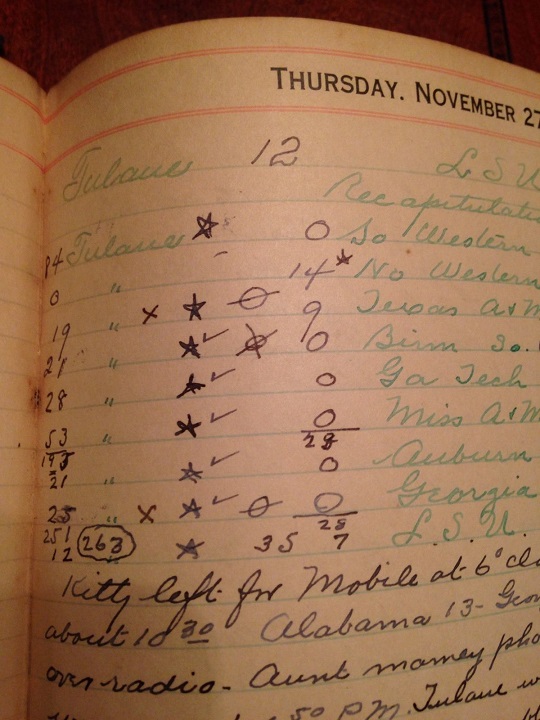 THURSDAY. NOVEMBER 27
Tulane 12 L S U
Recapitulatio
84 Tulane ★ 0 So Western
0 " 14 * No Western
19 " x ★ 0 9 Texas A+M
21 " ★ ✓ 0 Birm So.
28 " ★ ✓ 0 Ga Tech
53 " ★ ✓ 0 Miss A+M
21 " ★ ✓ 0 Auburn
25 " x ★ ✓ 0 0 Georgia
251 28
12 263 ★ 35 7 L.S.U.
Kitty left for Mobile at 6° clo
about 10 30 Alabama 13 - Geor
over radio - Aunt mamey pho
50 P.M. Tulane w